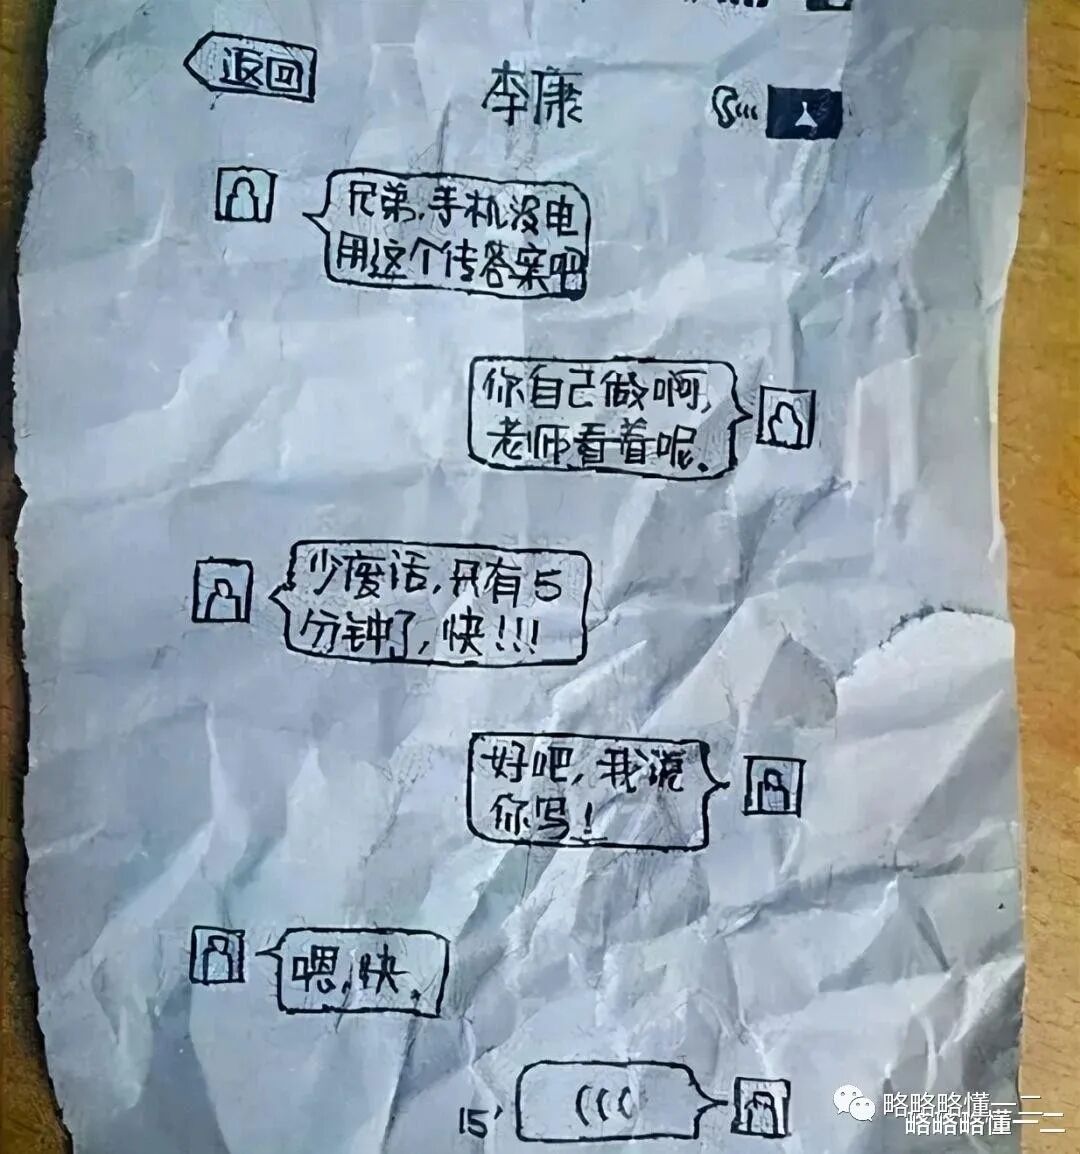 返回
李康
兄弟,手机没电
用这个传答案吧
你自己做啊,
老师看着呢.
少废话,只有5
分钟了,快!!!
好吧,我说
你写!
嗯,快.
15'
略略略懂一二
略略略懂一二